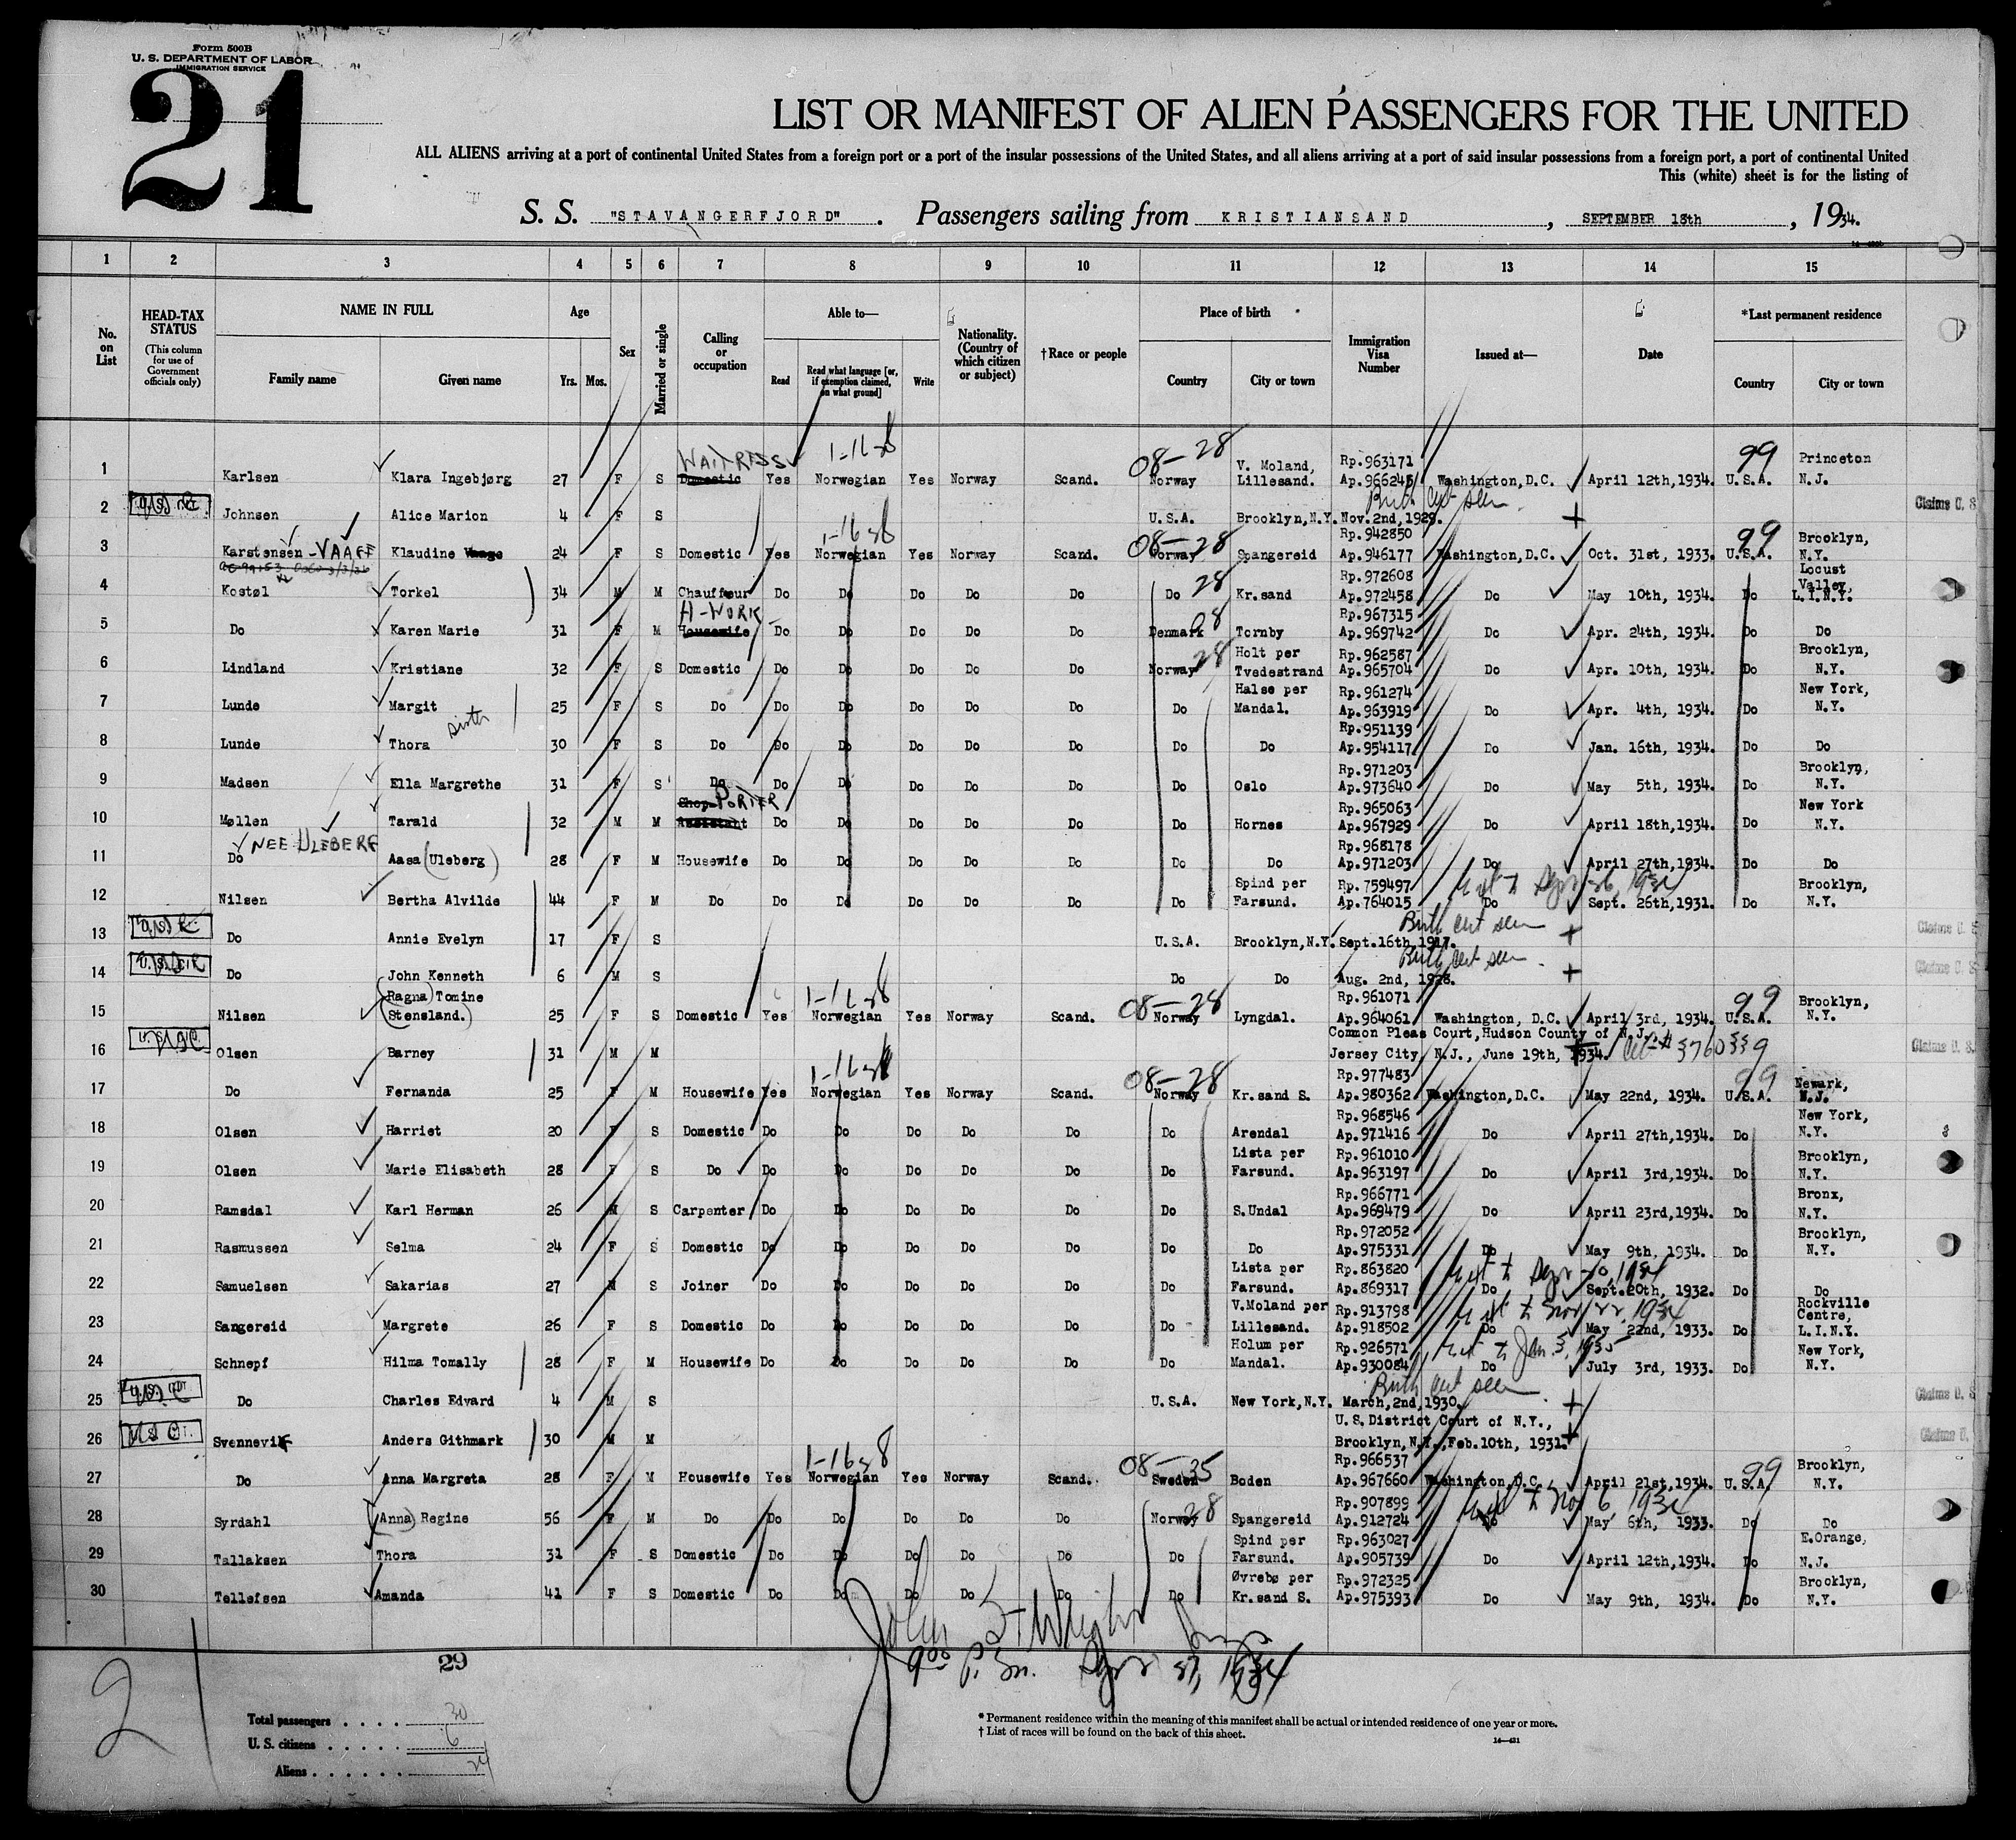 Form 500B
U. S. DEPARTMENT OF LABOR
IMMIGRATION SERVICE
21
LIST OR MANIFEST OF ALIEN PASSENGERS FOR THE UNITED
ALL ALIENS arriving at a port of continental United States from a foreign port or a port of the insular possessions of the United States, and all aliens arriving at a port of said insular possessions from a foreign port, a port of continental United
This (white) sheet is for the listing of
S. S. "STAVANGERFJORD". Passengers sailing from KRISTIANSAND, SEPTEMBER 18th, 1934.
1 2 3 4 5 6 7 8 9 10 11 12 13 14 15
No. on List
HEAD-TAX STATUS
(This column for use of Government officials only)
NAME IN FULL
Family name Given name
Age
Yrs. Mos.
Sex
Married or single
Calling or occupation
Able to—
Read
Read what language [or, if exemption claimed, on what ground]
Write
Nationality. (Country of which citizen or subject)
†Race or people
Place of birth
Country City or town
Immigration Visa Number
Issued at—
Date
*Last permanent residence
Country City or town
WAITRESS 1-1628 08-28 V. Moland, Rp.963171 99 Princeton
1 Karlsen Klara Ingebjørg 27 F S Domestic Yes Norwegian Yes Norway Scand. Norway Lillesand. Ap.966245 Washington,D.C. April 12th,1934. U.S.A. N.J.
Birth Cert seen
2 Johnsen Alice Marion 4 F S U.S.A. Brooklyn,N.Y. Nov.2nd,1929. Claims U. S
Rp.942850 Brooklyn,
3 Karstensen -VAAGE Klaudine Vaage 24 F S Domestic Yes Norwegian Yes Norway Scand. Norway 08-28 Spangereid Ap.946177 Washington,D.C. Oct. 31st,1933. 99 U.S.A. N.Y.
Rp.972608 Locust Valley,
4 Kostøl Torkel 34 M M Chauffeur Do Do Do Do Do Do 28 Kr.sand Ap.972458 Do May 10th, 1934. Do L.I.N.Y.
H-WORK Rp.967315
5 Do Karen Marie 31 F M Housewife Do Do Do Do Do Denmark 08 Tornby Ap.969742 Do Apr. 24th, 1934. Do Do
Holt per Rp.962587 Brooklyn,
6 Lindland Kristiane 32 F S Domestic Do Do Do Do Do Norway 28 Tvedestrand Ap.965704 Do Apr. 10th, 1934. Do N.Y.
Halse per Rp.961274 New York,
7 Lunde Margit 25 F S Do Do Do Do Do Do Do Mandal. Ap.963919 Do Apr. 4th, 1934. Do N.Y.
sister Rp.951139
8 Lunde Thora 30 F S Do Do Do Do Do Do Do Do Ap.954117 Do Jan. 16th, 1934. Do Do
Rp.971203 Brooklyn,
9 Madsen Ella Margrethe 31 F S Do Do Do Do Do Do Do Oslo Ap.973640 Do May 5th, 1934. Do N.Y.
Shop PORTER Rp.965063 New York
10 Møllen Tarald 32 M M Assistant Do Do Do Do Do Do Hornes Ap.967929 Do April 18th,1934. Do N.Y.
NEE ULEBERG Rp.968178
11 Do Aasa (Uleberg) 28 F M Housewife Do Do Do Do Do Do Do Ap.971203 Do April 27th,1934. Do Do
Spind per Rp.759497 Brooklyn,
12 Nilsen Bertha Alvilde 44 F M Do Do Do Do Do Do Do Farsund. Ap.764015 Do Sept. 26th,1931. Do N.Y.
Birth Cert seen
13 Do Annie Evelyn 17 F S U.S.A. Brooklyn,N.Y. Sept.16th,1917. Claims U. S
Birth Cert seen
14 Do John Kenneth 6 M S Do Do Aug. 2nd, 1928. Claims U. S
(Ragna) Tomine 1-1628 Rp.961071 Brooklyn,
15 Nilsen (Stensland.) 25 F S Domestic Yes Norwegian Yes Norway Scand. 08-28 Norway Lyngdal. Ap.964061 Washington, D.C. April 3rd, 1934. 99 U.S.A. N.Y.
Common Pleas Court,Hudson County of N.J.
16 Olsen Barney 31 M M Jersey City, N.J., June 19th, 1934. Claims U. S.
Rp.977483 Newark,
17 Do Fernanda 25 F M Housewife Yes Norwegian Yes Norway Scand. 08-28 Norway Kr.sand S. Ap.980362 Washington,D.C. May 22nd, 1934. 99 U.S.A. N.J.
Rp.968546 New York,
18 Olsen Harriet 20 F S Domestic Do Do Do Do Do Do Arendal Ap.971416 Do April 27th,1934. Do N.Y.
Lista per Rp.961010 Brooklyn,
19 Olsen Marie Elisabeth 28 F S Do Do Do Do Do Do Do Farsund. Ap.963197 Do April 3rd,1934. Do N.Y.
Rp.966771 Bronx,
20 Ramsdal Karl Herman 26 M S Carpenter Do Do Do Do Do Do S.Undal Ap.969479 Do April 23rd,1934. Do N.Y.
Rp.972052 Brooklyn,
21 Rasmussen Selma 24 F S Domestic Do Do Do Do Do Do Do Ap.975331 Do May 9th, 1934. Do N.Y.
Lista per Rp.863820
22 Samuelsen Sakarias 27 M S Joiner Do Do Do Do Do Do Farsund. Ap.869317 Do Sept.20th, 1932. Do Do
V.Moland per Rp.913798 Rockville Centre,
23 Sangereid Margrete 26 F S Domestic Do Do Do Do Do Do Lillesand. Ap.918502 Do May 22nd, 1933. Do L.I.N.Y.
Holum per Rp.926571 New York,
24 Schnepf Hilma Tomally 28 F M Housewife Do Do Do Do Do Do Mandal. Ap.930084 Do July 3rd, 1933. Do N.Y.
Birth Cert seen
25 Do Charles Edvard 4 M S U.S.A. New York,N.Y. March,2nd,1930. Claims U. S
U.S.District Court of N.Y.,
26 Svennevik Anders Githmark 30 M M Brooklyn,N.Y.,Feb.10th, 1931. Claims U.
Rp.966537 Brooklyn,
27 Do Anna Margreta 28 F M Housewife Yes Norwegian Yes Norway Scand. 08-35 Sweden Boden Ap.967660 Washington,D.C. April 21st,1934. 99 U.S.A. N.Y.
Rp.907899
28 Syrdahl (Anna) Regine 56 F M Do Do Do Do Do Do Norway 28 Spangereid Ap.912724 Do May 6th, 1933. Do Do
Spind per Rp.963027 E.Orange,
29 Tallaksen Thora 31 F S Domestic Do Do Do Do Do Do Farsund. Ap.905739 Do April 12th,1934. Do N.J.
Øvrebø per Rp.972325 Brooklyn,
30 Tellefsen Amanda 41 F S Domestic Do Do Do Do Do Do Kr.sand S. Ap.975393 Do May 9th, 1934. Do N.Y.
29
21
Total passengers . . . . 30
U. S. citizens . . . . . 6
Aliens . . . . . . 24
* Permanent residence within the meaning of this manifest shall be actual or intended residence of one year or more.
† List of races will be found on the back of this sheet.